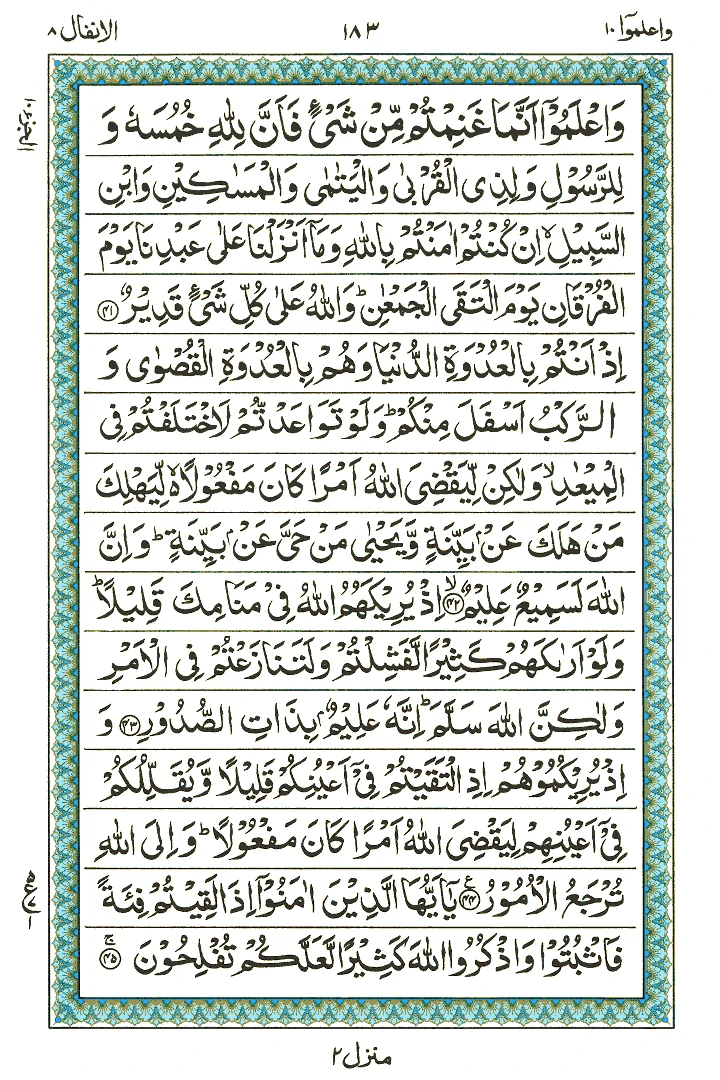 واعلموٓا ١٠
١٨٣
الانفال ٨
الجزء ١٠
وَاعْلَمُوْٓا اَنَّمَا غَنِمْتُمْ مِّنْ شَىْءٍ فَاَنَّ لِلّٰهِ خُمُسَهٗ وَ
لِلرَّسُوْلِ وَلِذِى الْقُرْبٰى وَالْيَتٰمٰى وَالْمَسٰكِيْنِ وَابْنِ
السَّبِيْلِ ۙ اِنْ كُنْتُمْ اٰمَنْتُمْ بِاللّٰهِ وَمَآ اَنْزَلْنَا عَلٰى عَبْدِنَا يَوْمَ
الْفُرْقَانِ يَوْمَ الْتَقَى الْجَمْعٰنِ ؕ وَاللّٰهُ عَلٰى كُلِّ شَىْءٍ قَدِيْرٌ ﴿۴۱﴾
اِذْ اَنْتُمْ بِالْعُدْوَةِ الدُّنْيَا وَهُمْ بِالْعُدْوَةِ الْقُصْوٰى وَ
الرَّكْبُ اَسْفَلَ مِنْكُمْ ؕ وَلَوْ تَوَاعَدْتُّمْ لَاخْتَلَفْتُمْ فِى
الْمِيْعٰدِ ۙ وَلٰكِنْ لِّيَقْضِىَ اللّٰهُ اَمْرًا كَانَ مَفْعُوْلًا ۙ لِّيَهْلِكَ
مَنْ هَلَكَ عَنْۢ بَيِّنَةٍ وَّيَحْيٰى مَنْ حَىَّ عَنْۢ بَيِّنَةٍ ؕ وَاِنَّ
اللّٰهَ لَسَمِيْعٌ عَلِيْمٌ ۙ﴿۴۲﴾ اِذْ يُرِيْكَهُمُ اللّٰهُ فِىْ مَنَامِكَ قَلِيْلًا ؕ
وَلَوْ اَرٰىكَهُمْ كَثِيْرًا لَّفَشِلْتُمْ وَلَتَنَازَعْتُمْ فِى الْاَمْرِ
وَلٰكِنَّ اللّٰهَ سَلَّمَ ؕ اِنَّهٗ عَلِيْمٌۢ بِذَاتِ الصُّدُوْرِ ﴿۴۳﴾ وَ
اِذْ يُرِيْكُمُوْهُمْ اِذِ الْتَقَيْتُمْ فِىْٓ اَعْيُنِكُمْ قَلِيْلًا وَّيُقَلِّلُكُمْ
فِىْٓ اَعْيُنِهِمْ لِيَقْضِىَ اللّٰهُ اَمْرًا كَانَ مَفْعُوْلًا ؕ وَاِلَى اللّٰهِ
تُرْجَعُ الْاُمُوْرُ ﴿۴۴﴾ ع يٰٓاَيُّهَا الَّذِيْنَ اٰمَنُوْٓا اِذَا لَقِيْتُمْ فِئَةً
فَاثْبُتُوْا وَاذْكُرُوا اللّٰهَ كَثِيْرًا لَّعَلَّكُمْ تُفْلِحُوْنَ ۚ﴿۴۵﴾
منزل ٢